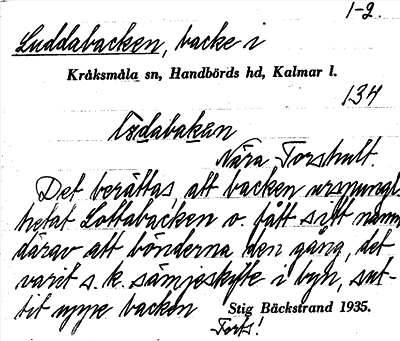 1-2.
Luddabacken, backe i
Kråksmåla sn, Handbörds hd, Kalmar l.
134
Nära Torshult.
Det berättas, att backen ursprungl.
hetat Lottabacken o. fått sitt namn
därav att bönderna den gång, det
varit s.k. sämjeskifte i byn, sut-
tit uppe backen
Stig Bäckstrand 1935.
Forts!